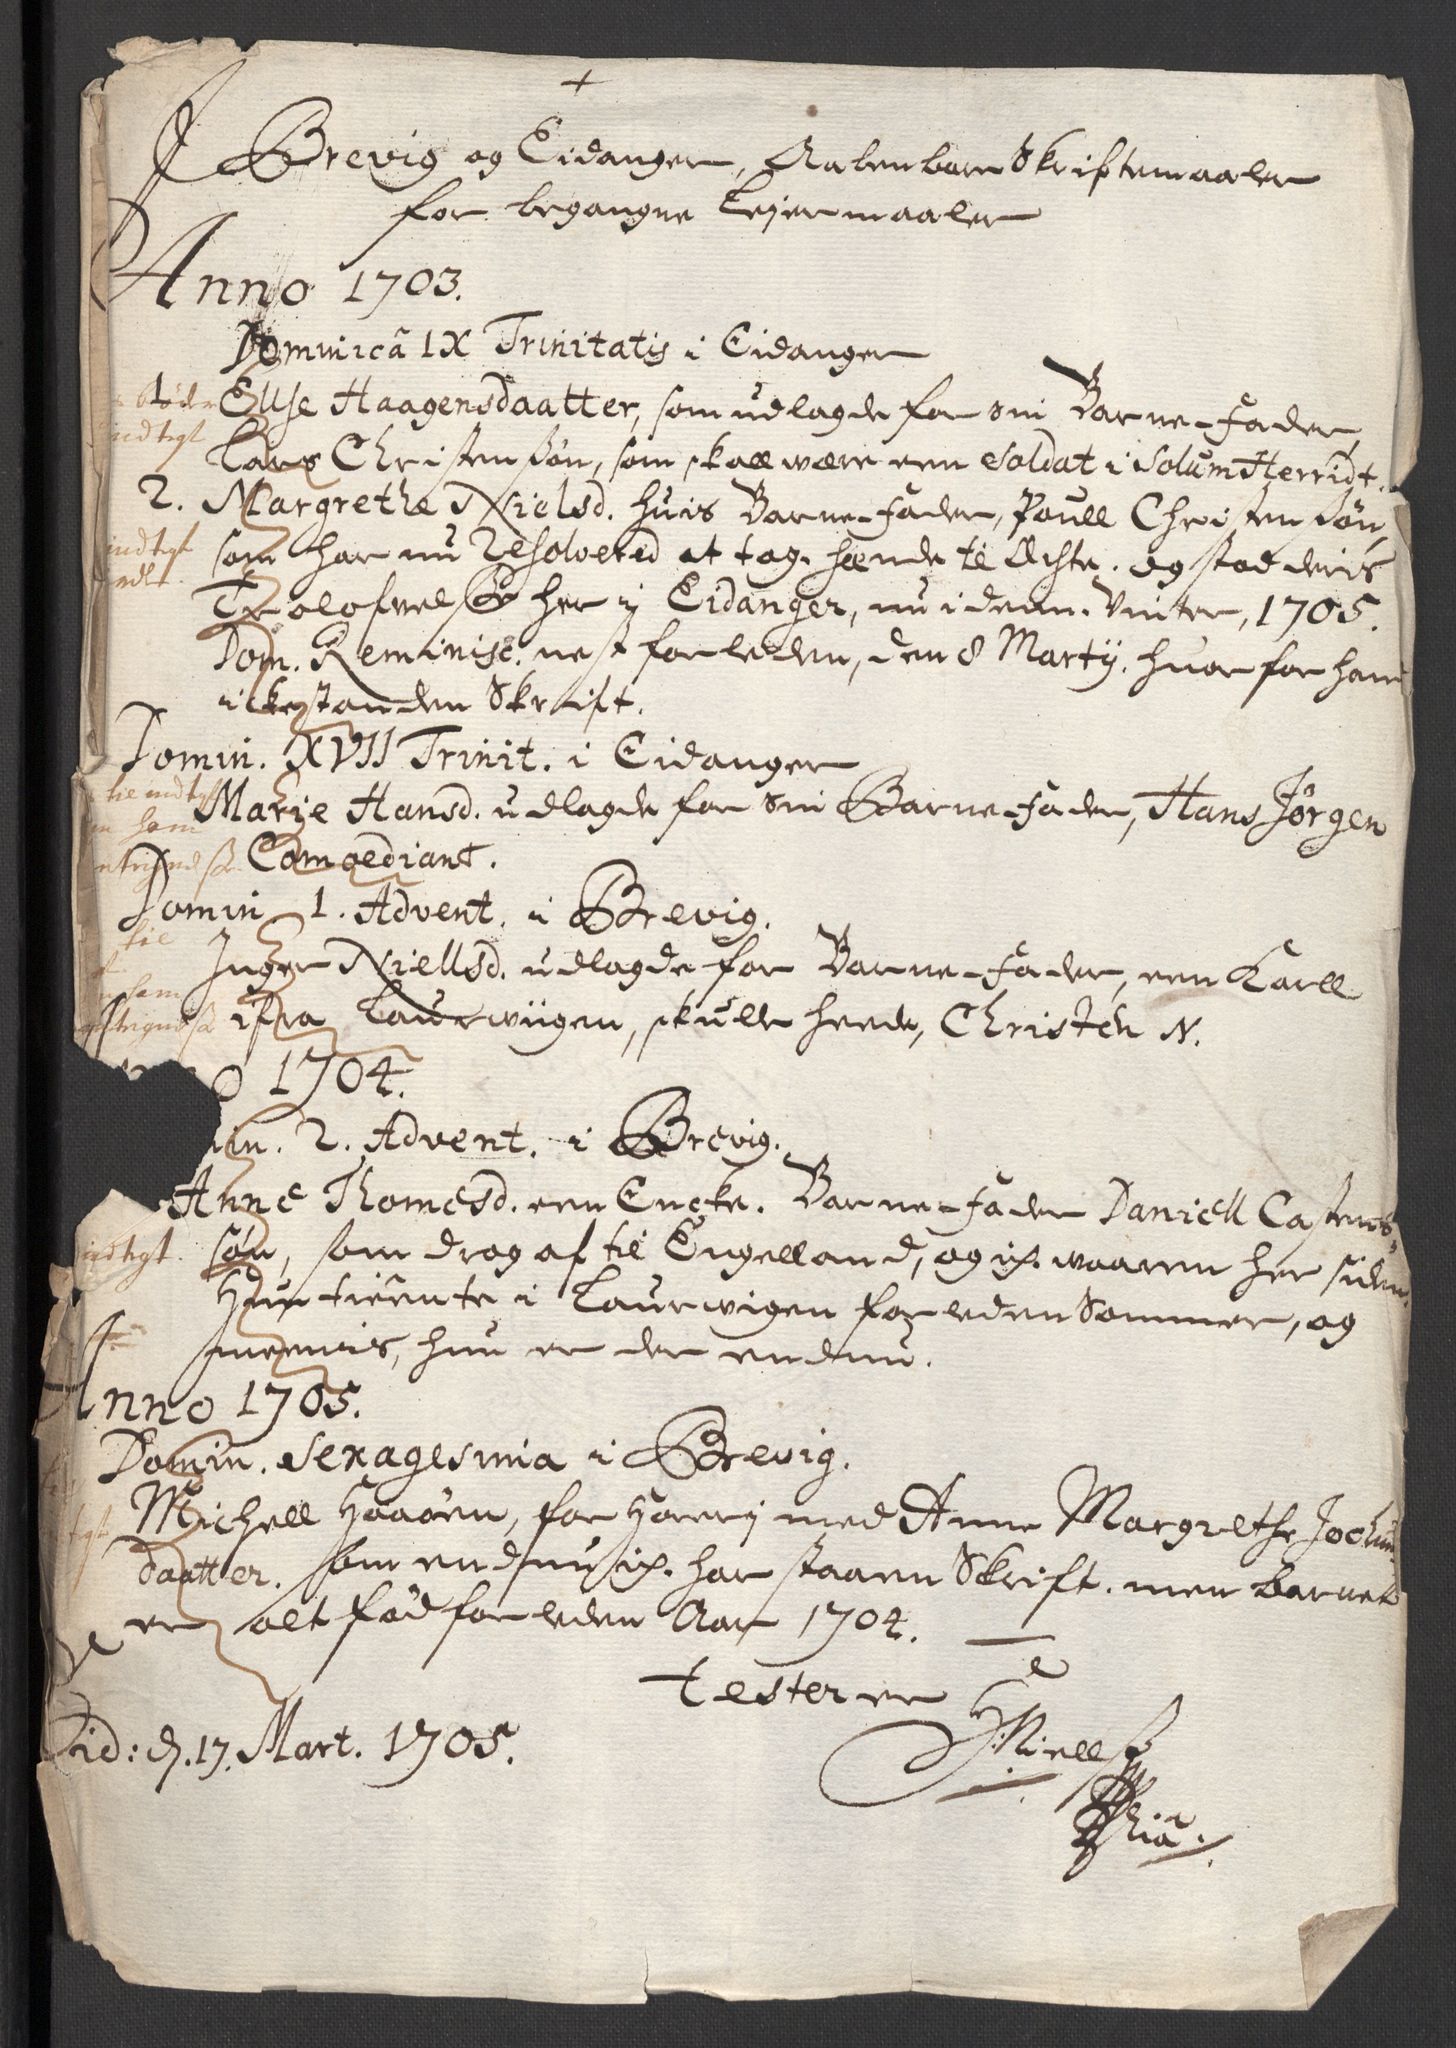 I Brevig og Eidanger, Aabenbare Skriftemaaler
for begangne Lejermaaler
Anno 1703.
Dominicâ IX Trinitatis i Eidanger
1. Ellse Haagensdaatter, som udlagde for sin Barne-Fader,
indtgt
Lars Christensøn, som skall være een Soldat i Solum Herridt.
2. Margrethe Nielsd. huis Barne-Fader, Poull Christensøn,
indtgt
som har nu Resolvered at tage hænde til Ächte. og stod deris
Trolofvelse her ij Eidanger, nu i denne Vinter, 1705.
Dom. Reminisc. nest forleden, den 8 Martij. huor for hand
icke standen Skrift.
Domin. XVII Trinit. i Eidanger
tie indtgt
Marie Hansd. udlagde for sin Barne-Fader, Hans Jørgen
ham
Comoediant.
Domin 1. Advent. i Brevig.
tie
Inger Niellsd. udlagde for Barne-Fader, een Karll
ham
ifra Laurwiigen, skulle heede, Christen N.
o 1704.
in. 2. Advent. i Brevig.
Anne Thomesd. een Encke. Barne-Fader Daniell Castens-
indtgt.
søn, som drog af til Engelland, og ix. waaren her siden.
Hun tiente i Laurwigen forleden Sommer, og
meenis, hun er der endnu.
Anno 1705.
Domin. Sexagesima i Brevig.
Michell Haaøen, for Horerij med Anne Margrethe Jochum
tgt
daatter. som endnu ix. har staaen Skrift. men barnet
er alt fød forleden Aar 1704.
testerer
Eid: d. 17. Mart. 1705.
H Niells